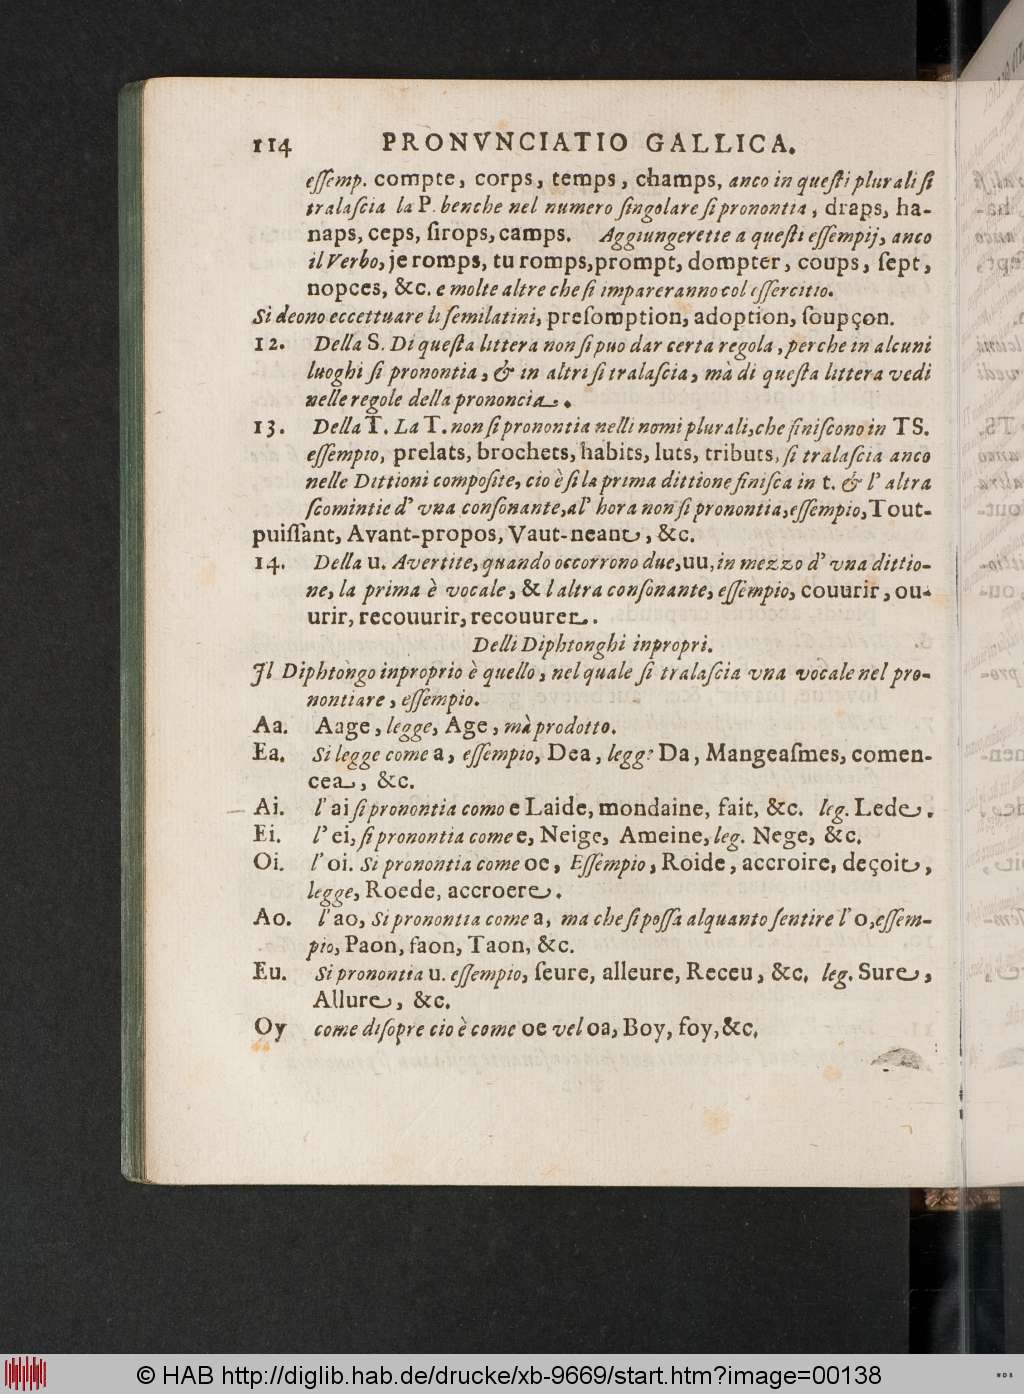 114 PRONVNCIATIO GALLICA.
eſſemp. compte, corps, temps, champs, anco in queſti plurali ſi
tralaſcia la P. benche nel numero ſingolare ſi pronontia, draps, ha-
naps, ceps, ſirops, camps. Aggiungerette a queſti eſſempij, anco
il Verbo, je romps, tu romps, prompt, dompter, coups, ſept,
nopces, &c. e molte altre che ſi impareranno col eſſercitio.
Si deono eccettuare li ſemilatini, preſomption, adoption, ſoupçon.
12. Della S. Di queſta littera non ſi puo dar certa regola, perche in alcuni
luoghi ſi pronontia, & in altri ſi tralaſcia, mà di queſta littera vedi
nelle regole della prononcia.
13. Della T. La T. non ſi pronontia nelli nomi plurali, che finiſcono in TS.
eſſempio, prelats, brochets, habits, luts, tributs, ſi tralaſcia anco
nelle Dittioni compoſite, cio è ſi la prima dittione finiſca in t. & l' altra
ſcomintie d' vna conſonante, al' hora non ſi pronontia, eſſempio, Tout-
puiſſant, Avant-propos, Vaut-neant, &c.
14. Della u. Avertite, quando occorrono due, uu, in mezzo d' vna dittio-
ne, la prima è vocale, & l altra conſonante, eſſempio, couurir, ou-
urir, recouurir, recouurer.
Delli Diphtonghi inpropri.
Il Diphtongo inproprio è quello, nel quale ſi tralaſcia vna vocale nel pro-
nontiare, eſſempio.
Aa. Aage, legge, Age, mà prodotto.
Ea. Si legge come a, eſſempio, Dea, legg: Da, Mangeaſmes, comen-
cea, &c.
Ai. l' ai ſi pronontia como e Laide, mondaine, fait, &c. leg. Lede.
Ei. l' ei, ſi pronontia come e, Neige, Ameine, leg. Nege, &c.
Oi. l' oi. Si pronontia come oe, Eſſempio, Roide, accroire, deçoit,
legge, Roede, accroere.
Ao. l' ao, Si pronontia come a, ma che ſi poſſa alquanto ſentire l' o, eſſem-
pio, Paon, faon, Taon, &c.
Eu. Si pronontia u. eſſempio, ſeure, alleure, Receu, &c. leg. Sure,
Allure, &c.
Oy come diſopre cio è come oe vel oa, Boy, foy, &c.
© HAB http://diglib.hab.de/drucke/xb-9669/start.htm?image=00138